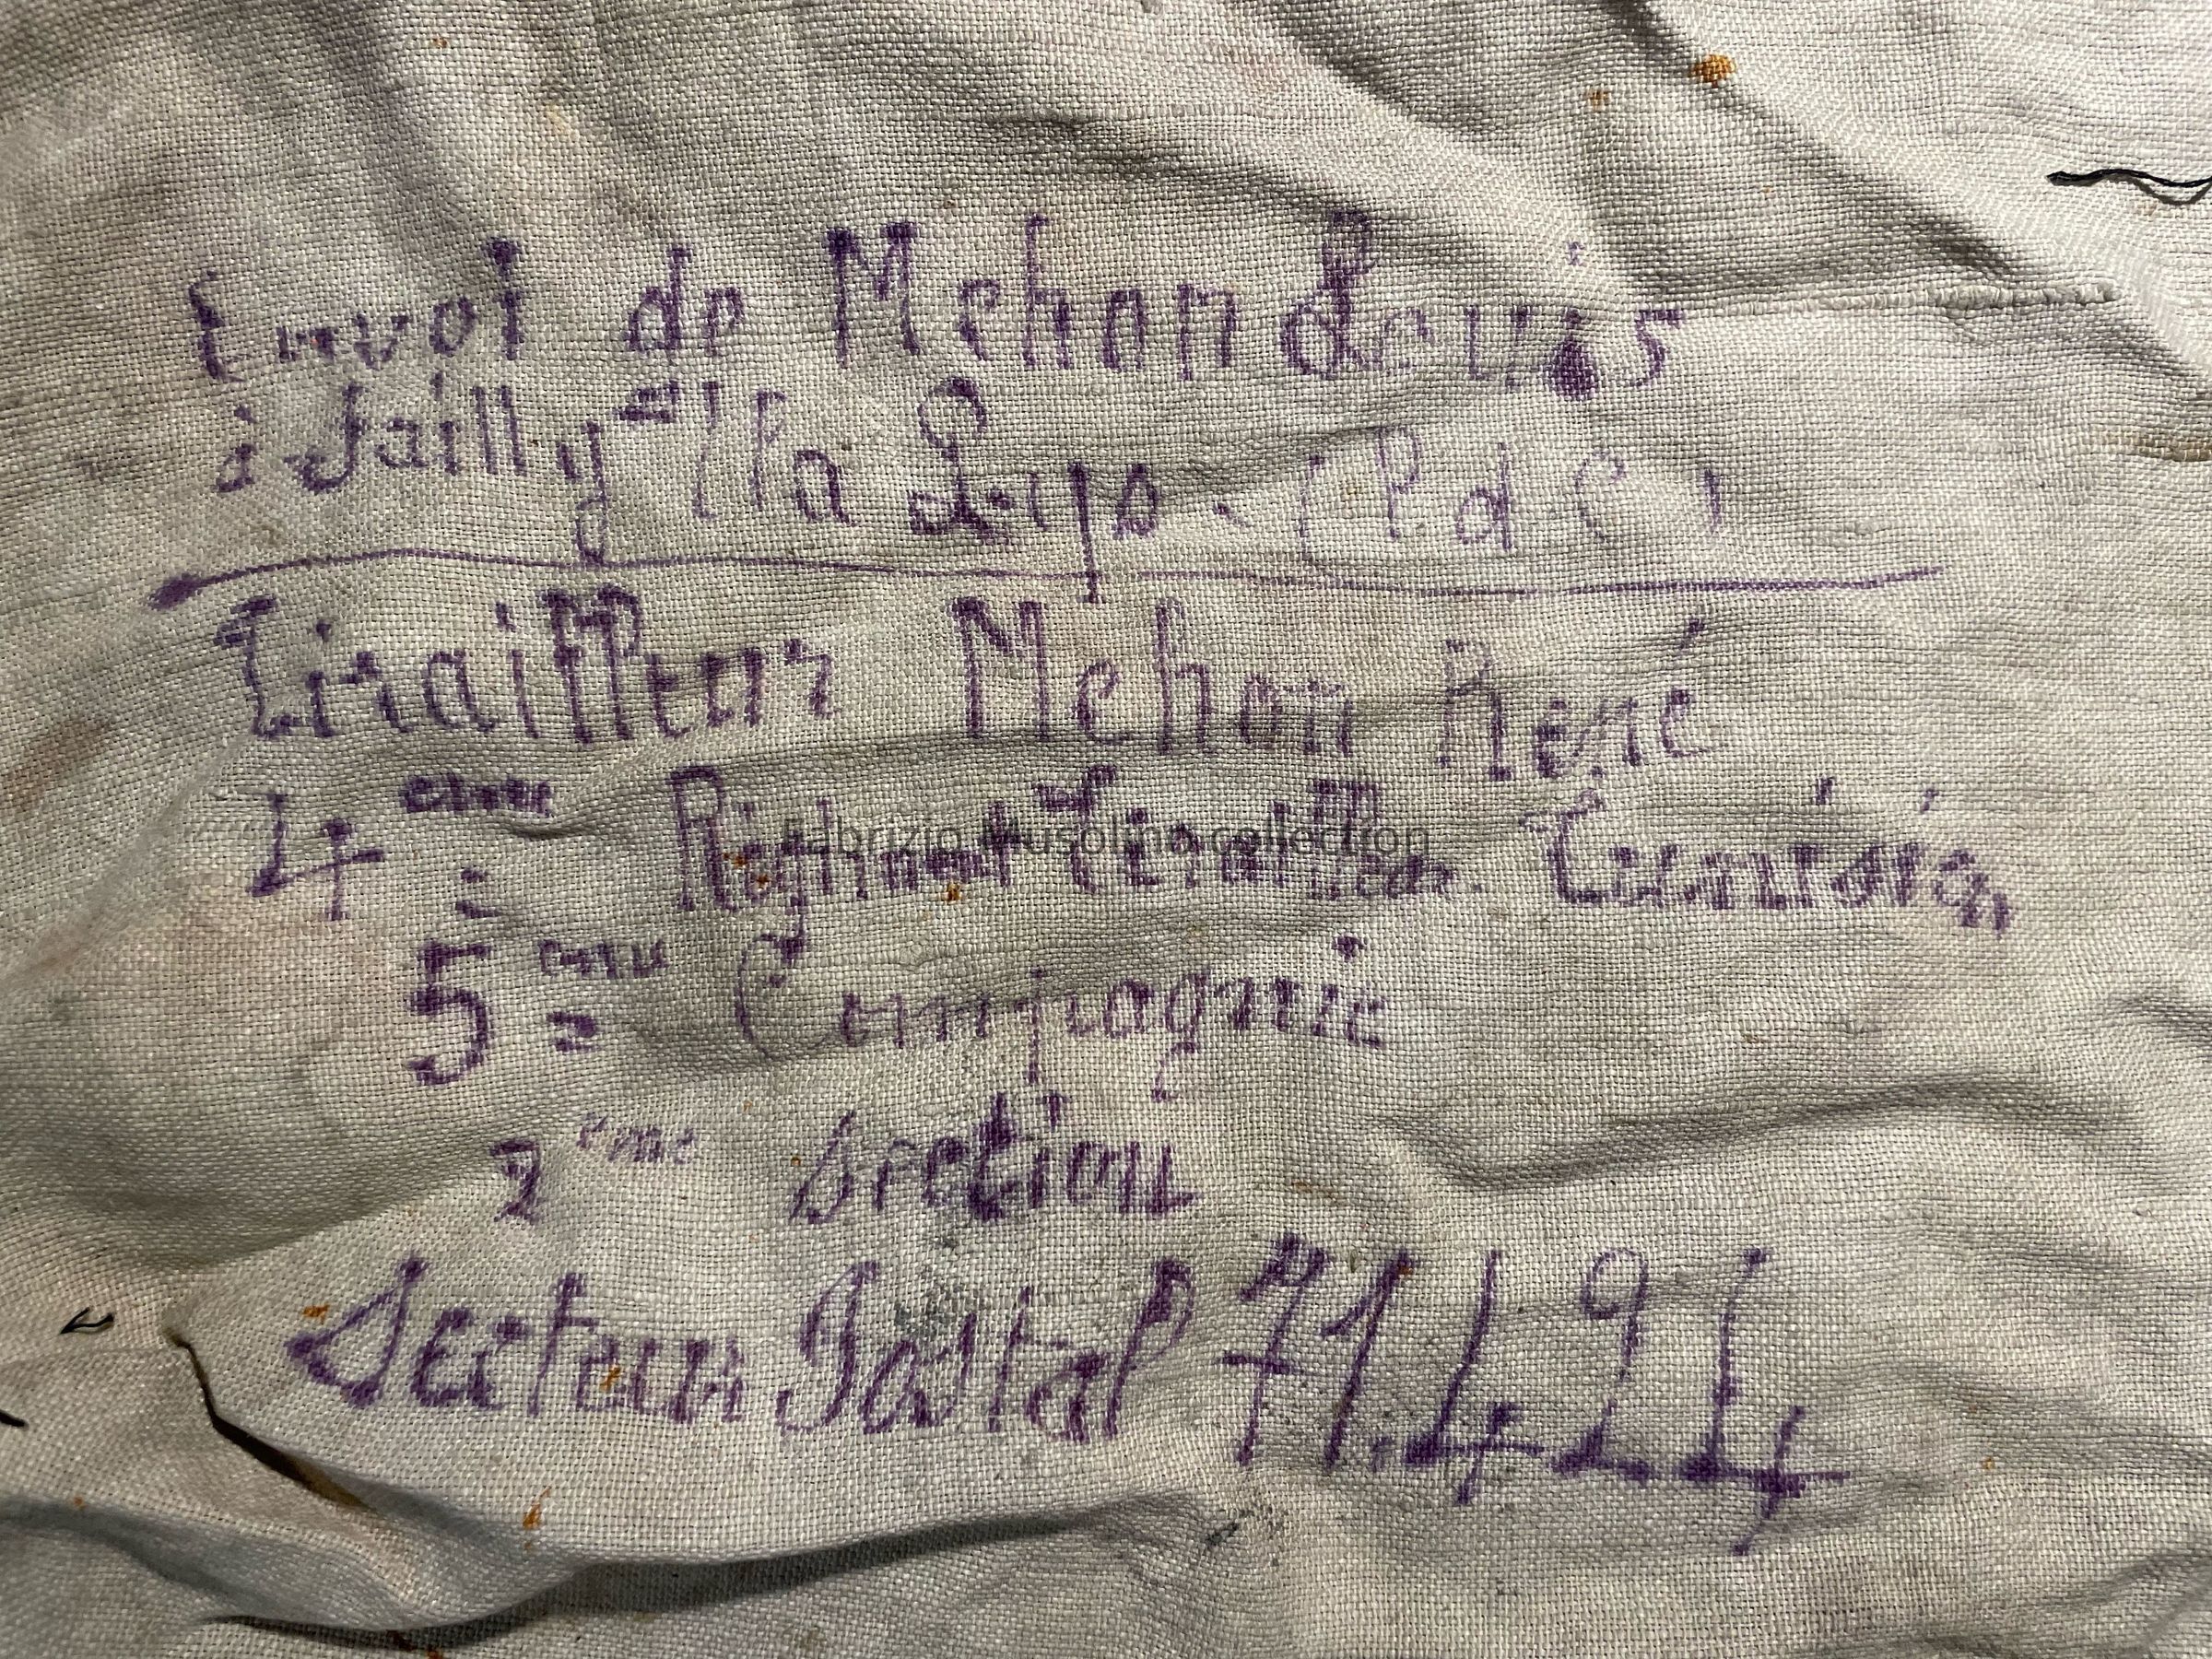 Envoi de Mehon Louis
à Sailly la (P d C)
Tirailleur Mehon René
4eme Régiment Tirailleur Tunisien
5eme Compagnie
2eme Section
Secteur Postal 71.494
Fabrizio Musolino collection